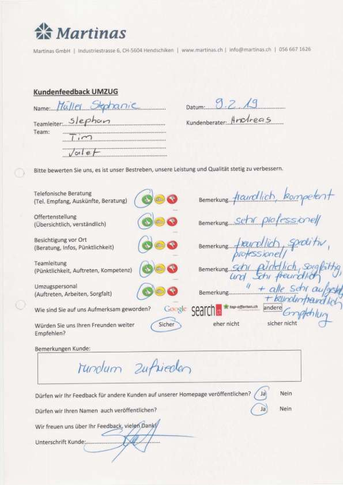 Martinas
Martinas GmbH | Industriestrasse 6, CH-5604 Hendschiken | www.martinas.ch | info@martinas.ch | 056 667 1626
Kundenfeedback UMZUG
Name: Müller Stephanie Datum: 9.2.19
Teamleiter: Stephan Kundenberater: Andreas
Team: Tim
Valet
Bitte bewerten Sie uns, es ist unser Bestreben, unsere Leistung und Qualität stetig zu verbessern.
Telefonische Beratung
(Tel. Empfang, Auskünfte, Beratung) Bemerkung freundlich, kompetent
Offertenstellung
(Übersichtlich, verständlich) Bemerkung sehr professionell
Besichtigung vor Ort
(Beratung, Infos, Pünktlichkeit) Bemerkung freundlich, speditiv, professionell
Teamleitung
(Pünktlichkeit, Auftreten, Kompetent) Bemerkung sehr pünktlich, sorgfältig, und sehr freundlich
Umzugspersonal
(Auftreten, Arbeiten, Sorgfalt) Bemerkung " + alle sehr aufgestellt + kundenfreundlich
Wie sind Sie auf uns Aufmerksam geworden? Google search top-offerten.ch andere Empfehlung
Würden Sie uns Ihren Freunden weiter Sicher eher nicht sicher nicht
Empfehlen?
Bemerkungen Kunde:
rundum zufrieden
Dürfen wir Ihr Feedback für andere Kunden auf unserer Homepage veröffentlichen? Ja Nein
Dürfen wir Ihren Namen auch veröffentlichen? Ja Nein
Wir freuen uns über Ihr Feedback, vielen Dank!
Unterschrift Kunde: